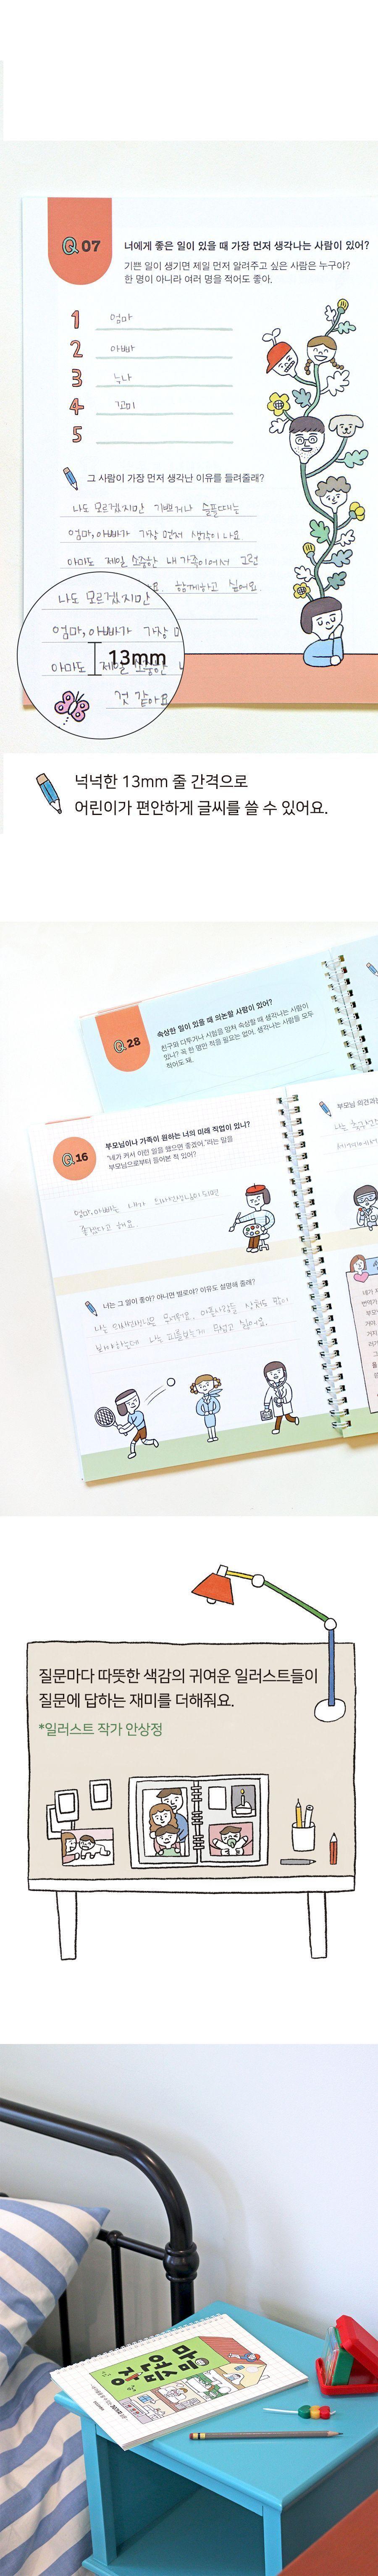 Q 07
너에게 좋은 일이 있을 때 가장 먼저 생각나는 사람이 있어?
기쁜 일이 생기면 제일 먼저 알려주고 싶은 사람은 누구야?
한 명이 아니라 여러 명을 적어도 좋아.
1 엄마
2 아빠
3 누나
4 꼬미
5
그 사람이 가장 먼저 생각난 이유를 들려줄래?
나도 모르겠지만 기쁘거나 슬플때는
엄마, 아빠가 가장 먼저 생각이 나요.
아마도 제일 소중한 내 가족이어서 그런
요. 함께하고 싶어요.
나도 모르겠지만
엄마, 아빠가 가장
아마도 제일 소중한
13mm
것 같아요
넉넉한 13mm 줄 간격으로
어린이가 편안하게 글씨를 쓸 수 있어요.
Q 28
속상한 일이 있을 때 의논할 사람이 있어?
친구와 다투거나 시험을 망쳐 속상할 때 생각나는 사람이
있니? 꼭 한 명만 적을 필요는 없어. 생각나는 사람들 모두
적어도 돼.
Q.16
부모님이나 가족이 원하는 너의 미래 직업이 있니?
"네가 커서 이런 일을 했으면 좋겠어."라는 말을
부모님으로부터 들어본 적 있어?
엄마, 아빠는 내가 의사선생님이 되면
좋겠다고 해요.
너는 그 일이 좋아? 아니면 별로야? 이유도 설명해 줄래?
나는 의사선생님은 무서워요. 아픈사람들 상처도 많이
봐야하는데 나는 피를보는게 무섭고 싫어요.
부모님 의견과
질문마다 따뜻한 색감의 귀여운 일러스트들이
질문에 답하는 재미를 더해줘요.
*일러스트 작가 안상정